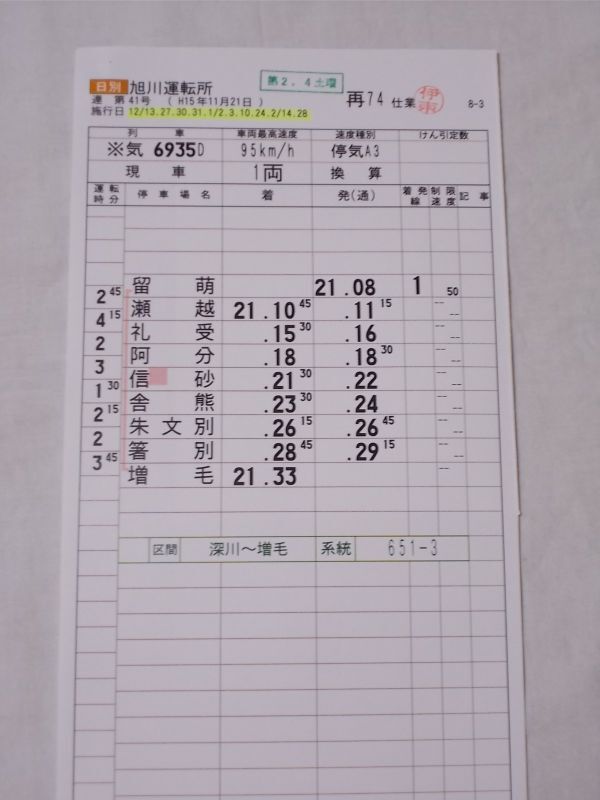 第2．4土曜
日別 旭川運転所
運 第 41号 （ H15年11月21日 ） 再74 仕業 伊東 8-3
施行日 12/13.27.30.31.1/2.3.10.24.2/14.28
列 車 車両最高速度 速度種別 けん引定数
※気 6935D 95km/h 停気A3
現 車 1両 換 算
運転時分 停 車 場 名 着 発(通) 着発線 制限速度 記 事
留 萌 21.08 1 50
2 45
瀬 越 21.10 45 .11 15
4 15
礼 受 .15 30 .16
2
阿 分 .18 .18 30
3
信 砂 .21 30 .22
1 30
舎 熊 .23 30 .24
2 15
朱 文 別 .26 15 .26 45
2
箸 別 .28 45 .29 15
3 45
増 毛 21.33
区間 深川～増毛 系統 651-3